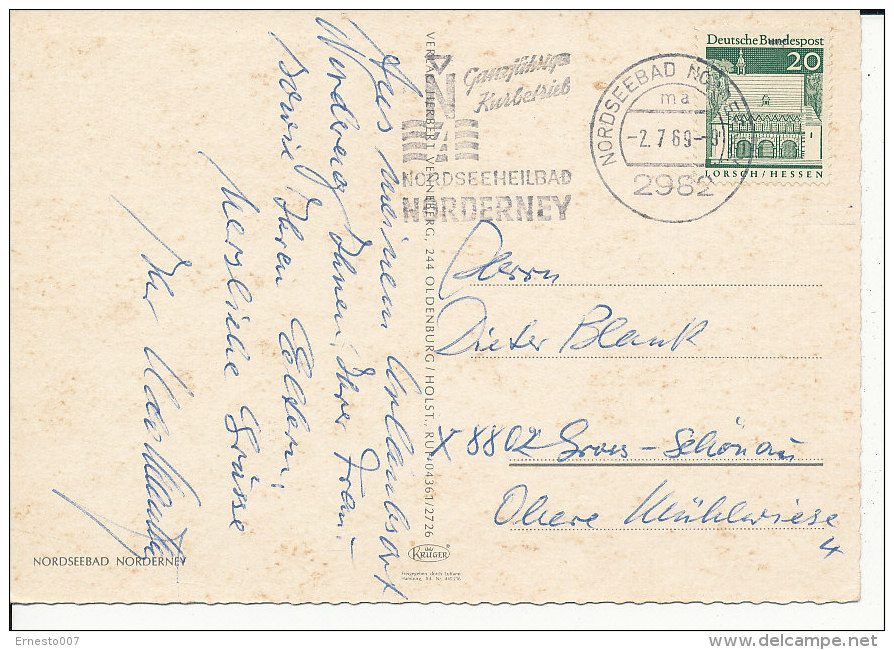 Aus meinem Urlaubsort
Norderney Ihnen, Ihrer Frau
sowie Ihren Eltern;
herzliche Grüsse
Ihr
NORDSEEBAD NORDERNEY
VERLAG HERBERT VENNEBERG, 244 OLDENBURG/HOLST., RUF 04361/2726
KRÜGER
Ganzjähriger
Kurbetrieb
N
NORDSEEHEILBAD
NORDERNEY
NORDSEEBAD NORDERNEY
ma
-2.7.69-8
2982
Deutsche Bundespost
20
LORSCH/HESSEN
Herrn
Dieter Blank
X 8802 Gross-Schönau
Obere Mühlwiese
4
Ernesto007
delcampe.net